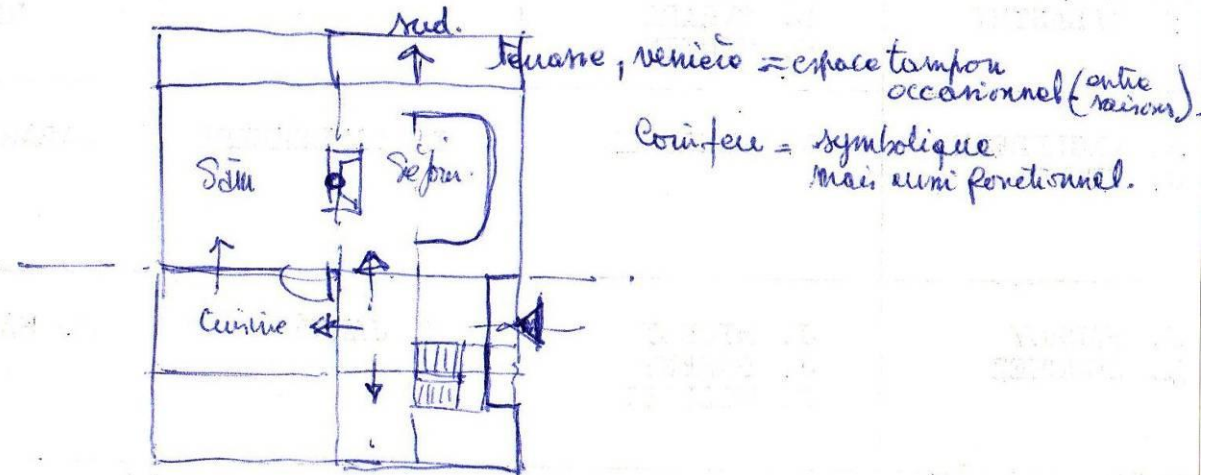 sud.
Terrasse, veranda = espace tampon
occasionnel (entre
saisons).
Coin feu = symbolique
mais aussi fonctionnel.
Sàm
Séjour.
Cuisine